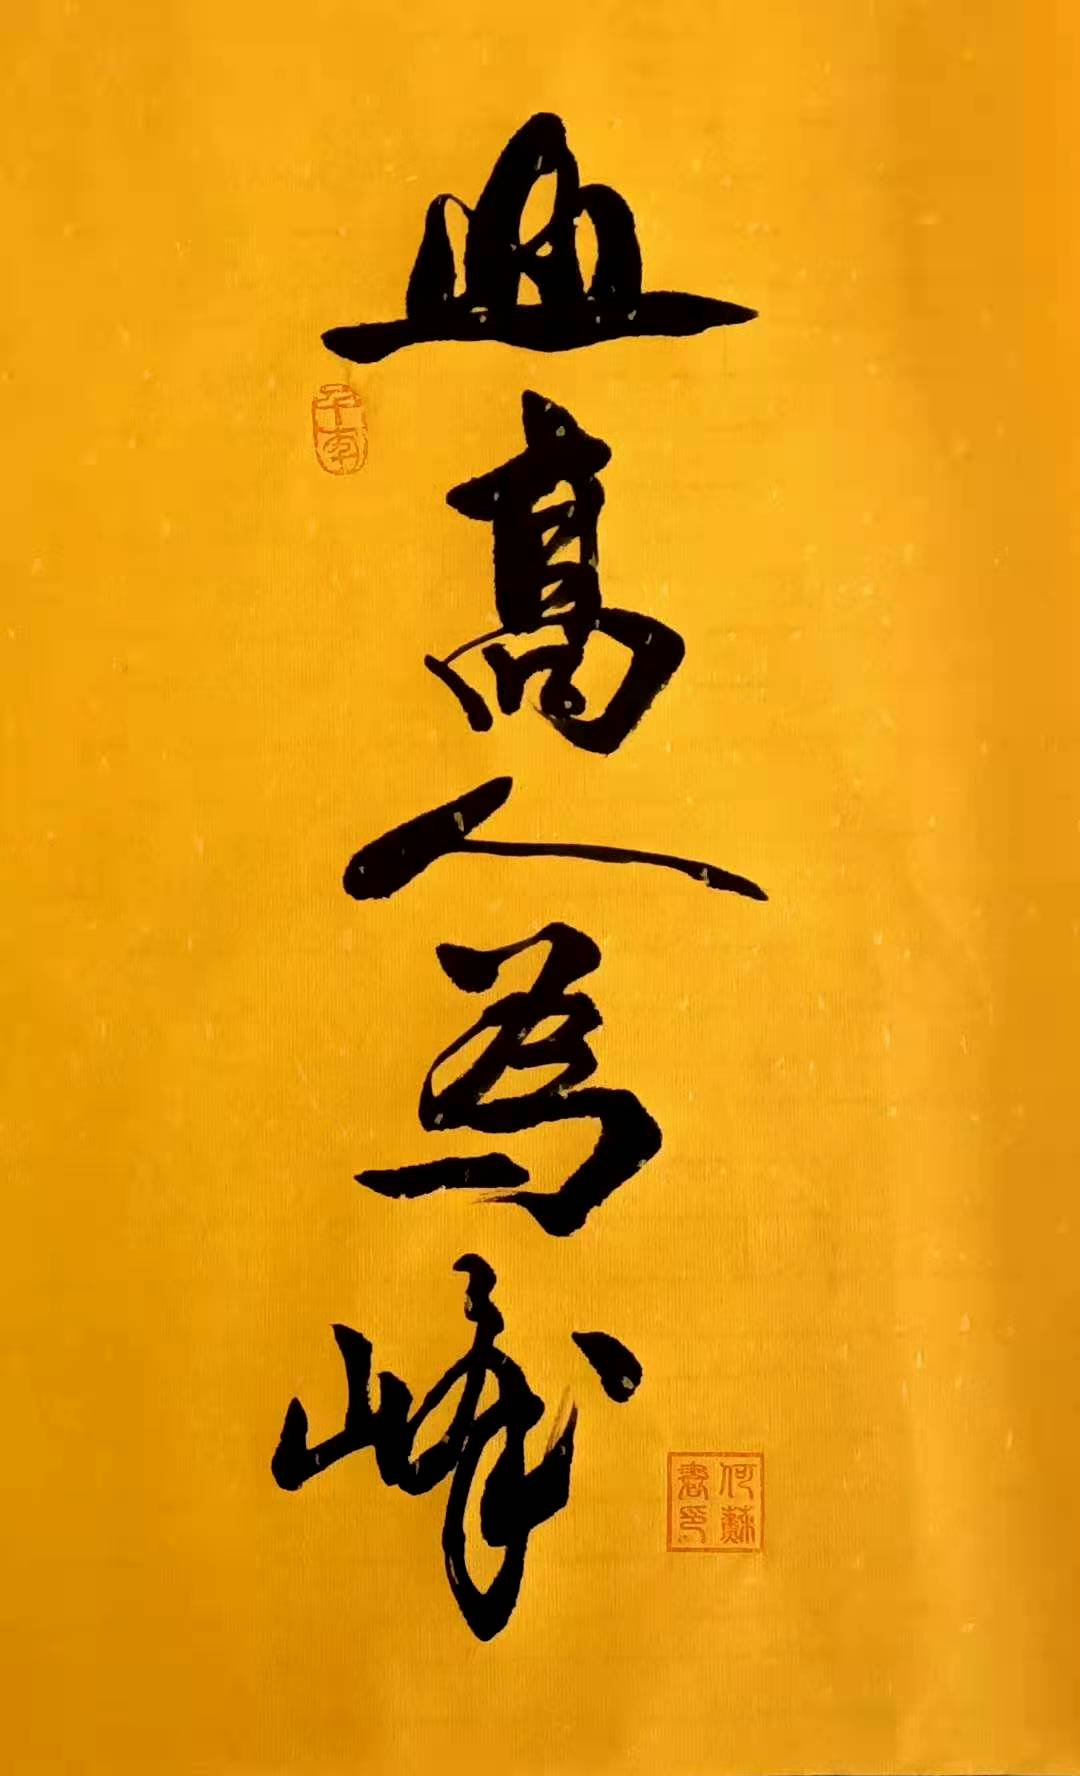 山高人為峰
何蘇書印